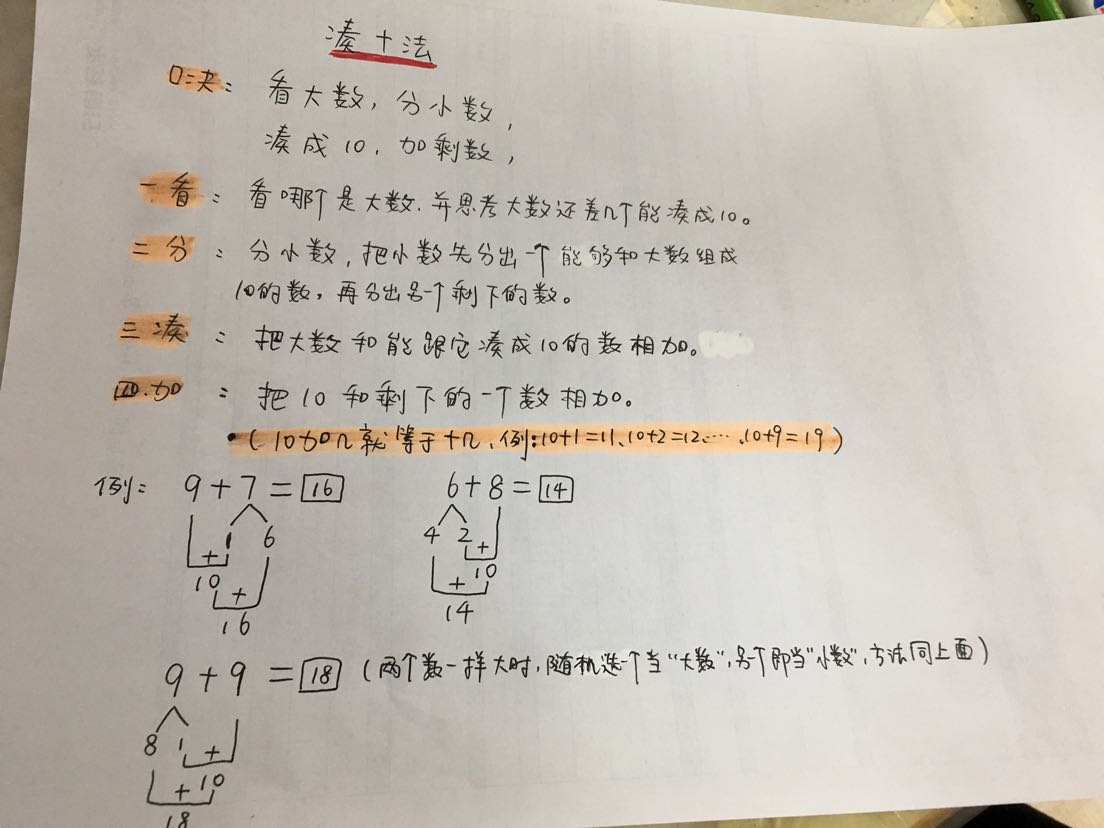 凑十法
口决：看大数，分小数，
凑成10，加剩数，
一看：看哪个是大数.并思考大数还差几个能凑成10。
二分：分小数，把小数先分出一个能够和大数组成
10的数，再分出另一个剩下的数。
三凑：把大数和能跟它凑成10的数相加。
四.加：把10和剩下的一个数相加。
•(10加几就等于十几，例：10+1=11、10+2=12、…、10+9=19)
例： 9+7=16 6+8=14
1 6 4 2
+ +
10 10
+ +
16 14
9+9=18 (两个数一样大时，随机选一个当“大数”，另一个即当“小数”，方法同上面)
8 1 +
+ 10
18